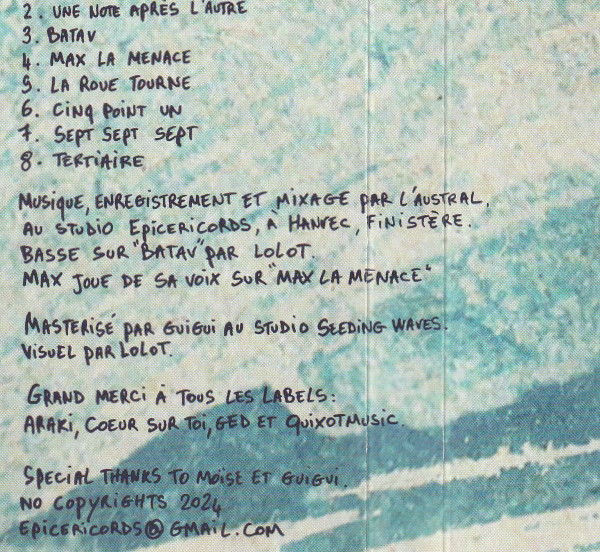 2. UNE NOTE APRÈS L'AUTRE
3. BATAV
4. MAX LA MENACE
5. LA ROUE TOURNE
6. CINQ POINT UN
7. SEPT SEPT SEPT
8. TERTIAIRE
MUSIQUE, ENREGISTREMENT ET MIXAGE PAR L'AUSTRAL,
AU STUDIO EPICERICORDS, À HANVEC, FINISTÈRE.
BASSE SUR "BATAV" PAR LOLOT.
MAX JOUE DE SA VOIX SUR "MAX LA MENACE"
MASTERISÉ PAR GUIGUI AU STUDIO SEEDING WAVES.
VISUEL PAR LOLOT.
GRAND MERCI À TOUS LES LABELS:
ARAKI, COEUR SUR TOI, GED ET QUIXOTMUSIC.
SPECIAL THANKS TO MOÏSE ET GUIGUI.
NO COPYRIGHTS 2024
EPICERICORDS@GMAIL.COM